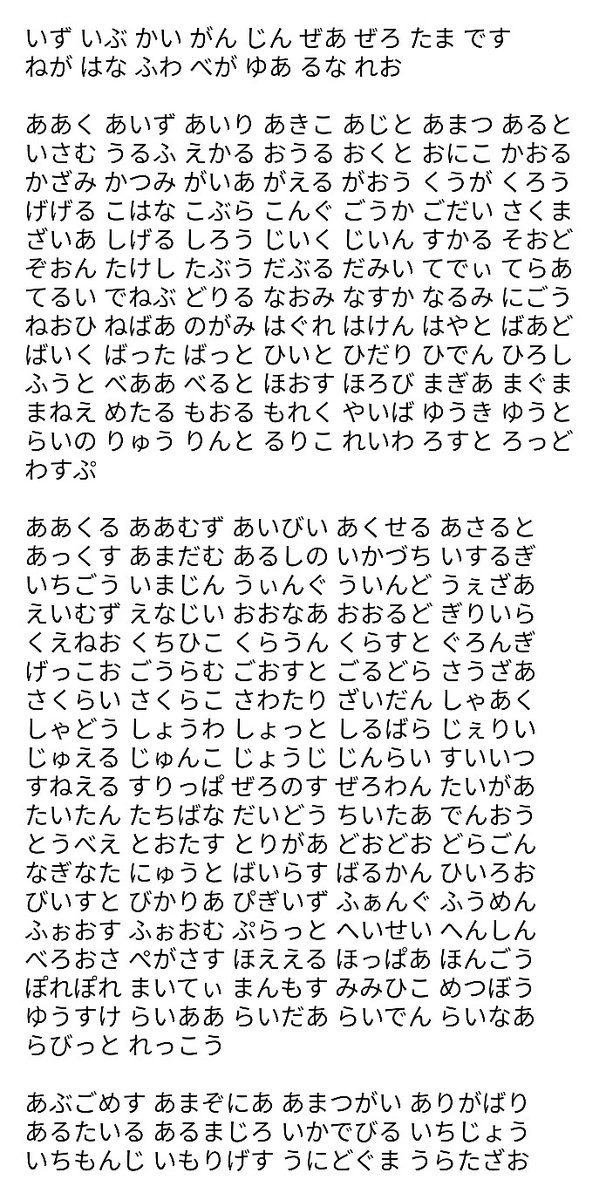 いず いぶ かい がん じん ぜあ ぜろ たま です
ねが はな ふわ べが ゆあ るな れお

ああく あいず あいり あきこ あじと あまつ あると
いさむ うるふ えかる おうる おくと おにこ かおる
かざみ かつみ がいあ がえる がおう くうが くろう
げげる こはな こぶら こんぐ ごうか ごだい さくま
ざいあ しげる しろう じいく じいん すかる そおど
ぞおん たけし たぶう だぶる だみい てでぃ てらあ
てるい でねぶ どりる なおみ なすか なるみ にごう
ねおひ ねばあ のがみ はぐれ はけん はやと ばあど
ばいく ばった ばっと ひいと ひだり ひでん ひろし
ふうと べああ べると ほおす ほろび まぎあ まぐま
まねえ めたる もおる もれく やいば ゆうき ゆうと
らいの りゅう りんと るりこ れいわ ろすと ろっど
わすぷ

ああくる ああむず あいびい あくせる あさると
あっくす あまだむ あるしの いかづち いするぎ
いちごう いまじん うぃんぐ ういんど うぇざあ
えいむず えなじい おおなあ おおるど ぎりいら
くえねお くちひこ くらうん くらすと ぐろんぎ
げっこお ごうらむ ごおすと ごるどら さうざあ
さくらい さくらこ さわたり ざいだん しゃあく
しゃどう しょうわ しょっと しるばら じぇりい
じゅえる じゅんこ じょうじ じんらい すいいつ
すねえる すりっぱ ぜろのす ぜろわん たいがあ
たいたん たちばな だいどう ちいたあ でんおう
とうべえ とおたす とりがあ どおどお どらごん
なぎなた にゅうと ばいらす ばるかん ひいろお
びいすと びかりあ ぴぎいず ふぁんぐ ふうめん
ふぉおす ふぉおむ ぷらっと へいせい へんしん
べろおさ ぺがさす ほええる ほっぱあ ほんごう
ぽれぽれ まいてぃ まんもす みみひこ めつぼう
ゆうすけ らいああ らいだあ らいでん らいなあ
らびっと れっこう

あぶごめす あまぞにあ あまつがい ありがばり
あるたいる あるまじろ いかでびる いちじょう
いちもんじ いもりげす うにどぐま うらたざお